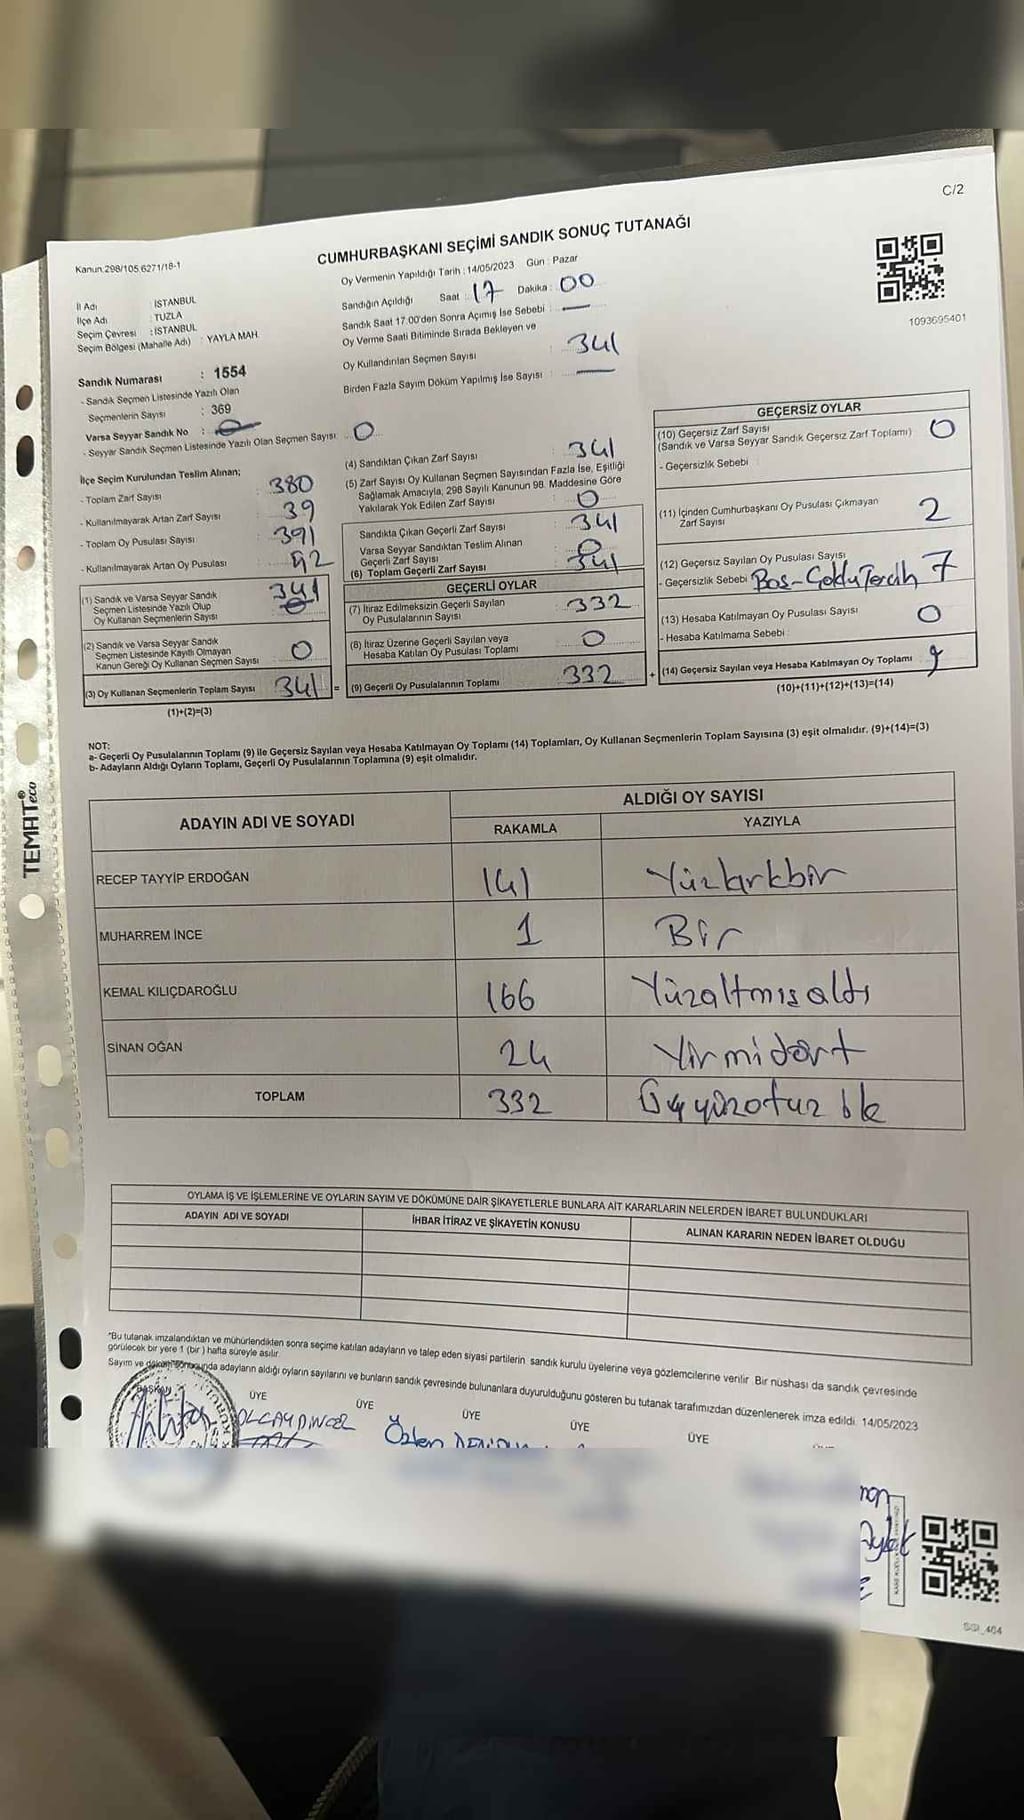 C/2
CUMHURBAŞKANI SEÇİMİ SANDIK SONUÇ TUTANAĞI
Kanun:298/105,6271/18-1
Oy Vermenin Yapıldığı Tarih : 14/05/2023 Gün : Pazar
İl Adı : İSTANBUL
İlçe Adı : TUZLA
Seçim Çevresi : İSTANBUL
Seçim Bölgesi (Mahalle Adı) : YAYLA MAH.
Sandığın Açıldığı Saat : 17 Dakika : 00
Sandık Saat 17:00'den Sonra Açımış İse Sebebi : —
Oy Verme Saati Bitiminde Sırada Bekleyen ve
Oy Kullandırılan Seçmen Sayısı : 341
Birden Fazla Sayım Döküm Yapılmış İse Sayısı : —
1093695401
Sandık Numarası : 1554
- Sandık Seçmen Listesinde Yazılı Olan
Seçmenlerin Sayısı : 369
Varsa Seyyar Sandık No :
- Seyyar Sandık Seçmen Listesinde Yazılı Olan Seçmen Sayısı : 0
İlçe Seçim Kurulundan Teslim Alınan;
- Toplam Zarf Sayısı : 380
- Kullanılmayarak Artan Zarf Sayısı : 39
- Toplam Oy Pusulası Sayısı : 391
- Kullanılmayarak Artan Oy Pusulası
(1) Sandık ve Varsa Seyyar Sandık
Seçmen Listesinde Yazılı Olup
Oy Kullanan Seçmenlerin Sayısı 341
(2) Sandık ve Varsa Seyyar Sandık
Seçmen Listesinde Kayıtlı Olmayan
Kanun Gereği Oy Kullanan Seçmen Sayısı 0
(3) Oy Kullanan Seçmenlerin Toplam Sayısı 341 =
(1)+(2)=(3)
(4) Sandıktan Çıkan Zarf Sayısı : 341
(5) Zarf Sayısı Oy Kullanan Seçmen Sayısından Fazla İse, Eşitliği
Sağlamak Amacıyla, 298 Sayılı Kanunun 98. Maddesine Göre
Yakılarak Yok Edilen Zarf Sayısı : 0
Sandıkta Çıkan Geçerli Zarf Sayısı : 341
Varsa Seyyar Sandıktan Teslim Alınan
Geçerli Zarf Sayısı : 0
(6) Toplam Geçerli Zarf Sayısı : 341
GEÇERLİ OYLAR
(7) İtiraz Edilmeksizin Geçerli Sayılan
Oy Pusulalarının Sayısı : 332
(8) İtiraz Üzerine Geçerli Sayılan veya
Hesaba Katılan Oy Pusulası Toplamı : 0
(9) Geçerli Oy Pusulalarının Toplamı 332 +
GEÇERSİZ OYLAR
(10) Geçersiz Zarf Sayısı
(Sandık ve Varsa Seyyar Sandık Geçersiz Zarf Toplamı) : 0
- Geçersizlik Sebebi :
(11) İçinden Cumhurbaşkanı Oy Pusulası Çıkmayan
Zarf Sayısı : 2
(12) Geçersiz Sayılan Oy Pusulası Sayısı : 7
- Geçersizlik Sebebi : Boş-Çoklu Tercih
(13) Hesaba Katılmayan Oy Pusulası Sayısı : 0
- Hesaba Katılmama Sebebi :
(14) Geçersiz Sayılan veya Hesaba Katılmayan Oy Toplamı 9
(10)+(11)+(12)+(13)=(14)
NOT:
a- Geçerli Oy Pusulalarının Toplamı (9) ile Geçersiz Sayılan veya Hesaba Katılmayan Oy Toplamı (14) Toplamları, Oy Kullanan Seçmenlerin Toplam Sayısına (3) eşit olmalıdır. (9)+(14)=(3)
b- Adayların Aldığı Oyların Toplamı, Geçerli Oy Pusulalarının Toplamına (9) eşit olmalıdır.
ADAYIN ADI VE SOYADI
ALDIĞI OY SAYISI
RAKAMLA YAZIYLA
RECEP TAYYİP ERDOĞAN 141 Yüzkırkbir
MUHARREM İNCE 1 Bir
KEMAL KILIÇDAROĞLU 166 Yüzaltmışaltı
SİNAN OĞAN 24 Yirmidört
TOPLAM 332 Üçyüzotuz
OYLAMA İŞ VE İŞLEMLERİNE VE OYLARIN SAYIM VE DÖKÜMÜNE DAİR ŞİKAYETLERLE BUNLARA AİT KARARLARIN NELERDEN İBARET BULUNDUKLARI
ADAYIN ADI VE SOYADI İHBAR İTİRAZ VE ŞİKAYETİN KONUSU ALINAN KARARIN NEDEN İBARET OLDUĞU
*Bu tutanak imzalandıktan ve mühürlendikten sonra seçime katılan adayların ve talep eden siyasi partilerin sandık kurulu üyelerine veya gözlemcilerine verilir. Bir nüshası da sandık çevresinde
görülecek bir yere 1 (bir) hafta süreyle asılır.
Sayım ve döküm sonucunda adayların aldığı oyların sayılarını ve bunların sandık çevresinde bulunanlara duyurulduğunu gösteren bu tutanak tarafımızdan düzenlenerek imza edildi. 14/05/2023
BAŞKAN ÜYE ÜYE ÜYE ÜYE ÜYE
OLCAY DİNÇEL
Özlem
SGI_464
TEMAT® eco